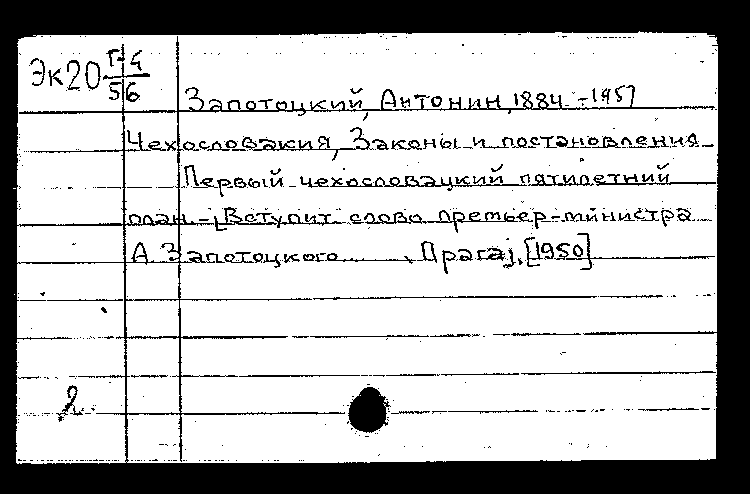 Эк20 Г-4
56
Запотоцкий, Антонин, 1884-1957
Чехословакия, Законы и постановления
Первый чехословацкий пятилетний
план. - [Вступит. слово премьер-министра
А. Запотоцкого... , Прага], [1950]
2.